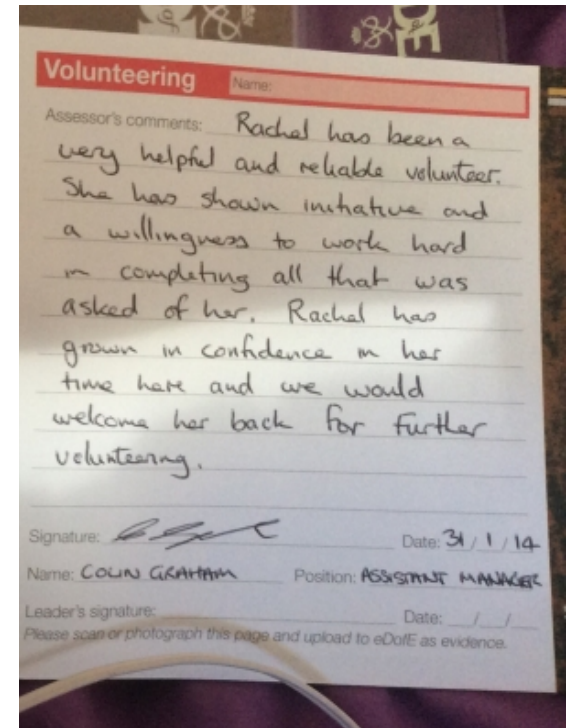 Volunteering Name:
Assessor's comments: Rachel has been a
very helpful and reliable volunteer.
She has shown initiative and
a willingness to work hard
in completing all that was
asked of her. Rachel has
grown in confidence in her
time here and we would
welcome her back for further
volunteering.
Signature: Date: 31/1/14
Name: COLIN GRAHAM Position: ASSISTANT MANAGER
Leader's signature: Date: / /
Please scan or photograph this page and upload to eDofE as evidence.